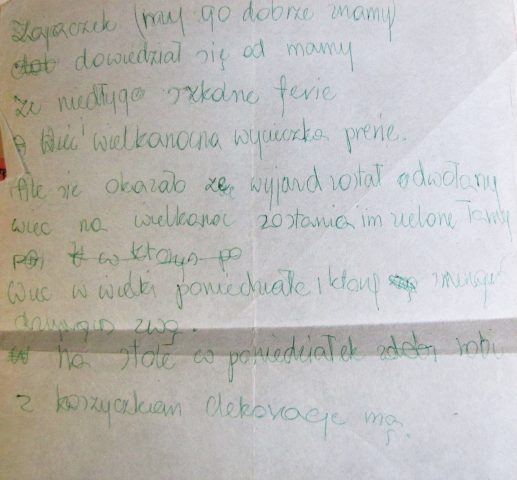 Zajączek (my go dobrze znamy)
dowiedział się od mamy
że niedługo szkolne ferie
Wieć wielkanocna wycieczka prerie.
Ale sie okazało wyjazd został odwołany
wiec na wielkanoc zostania im zielone
Wiec w wielki poniedziałek
drugim zwą.
na stole co poniedziałek robi
z koszyczkiem dekoracje mą